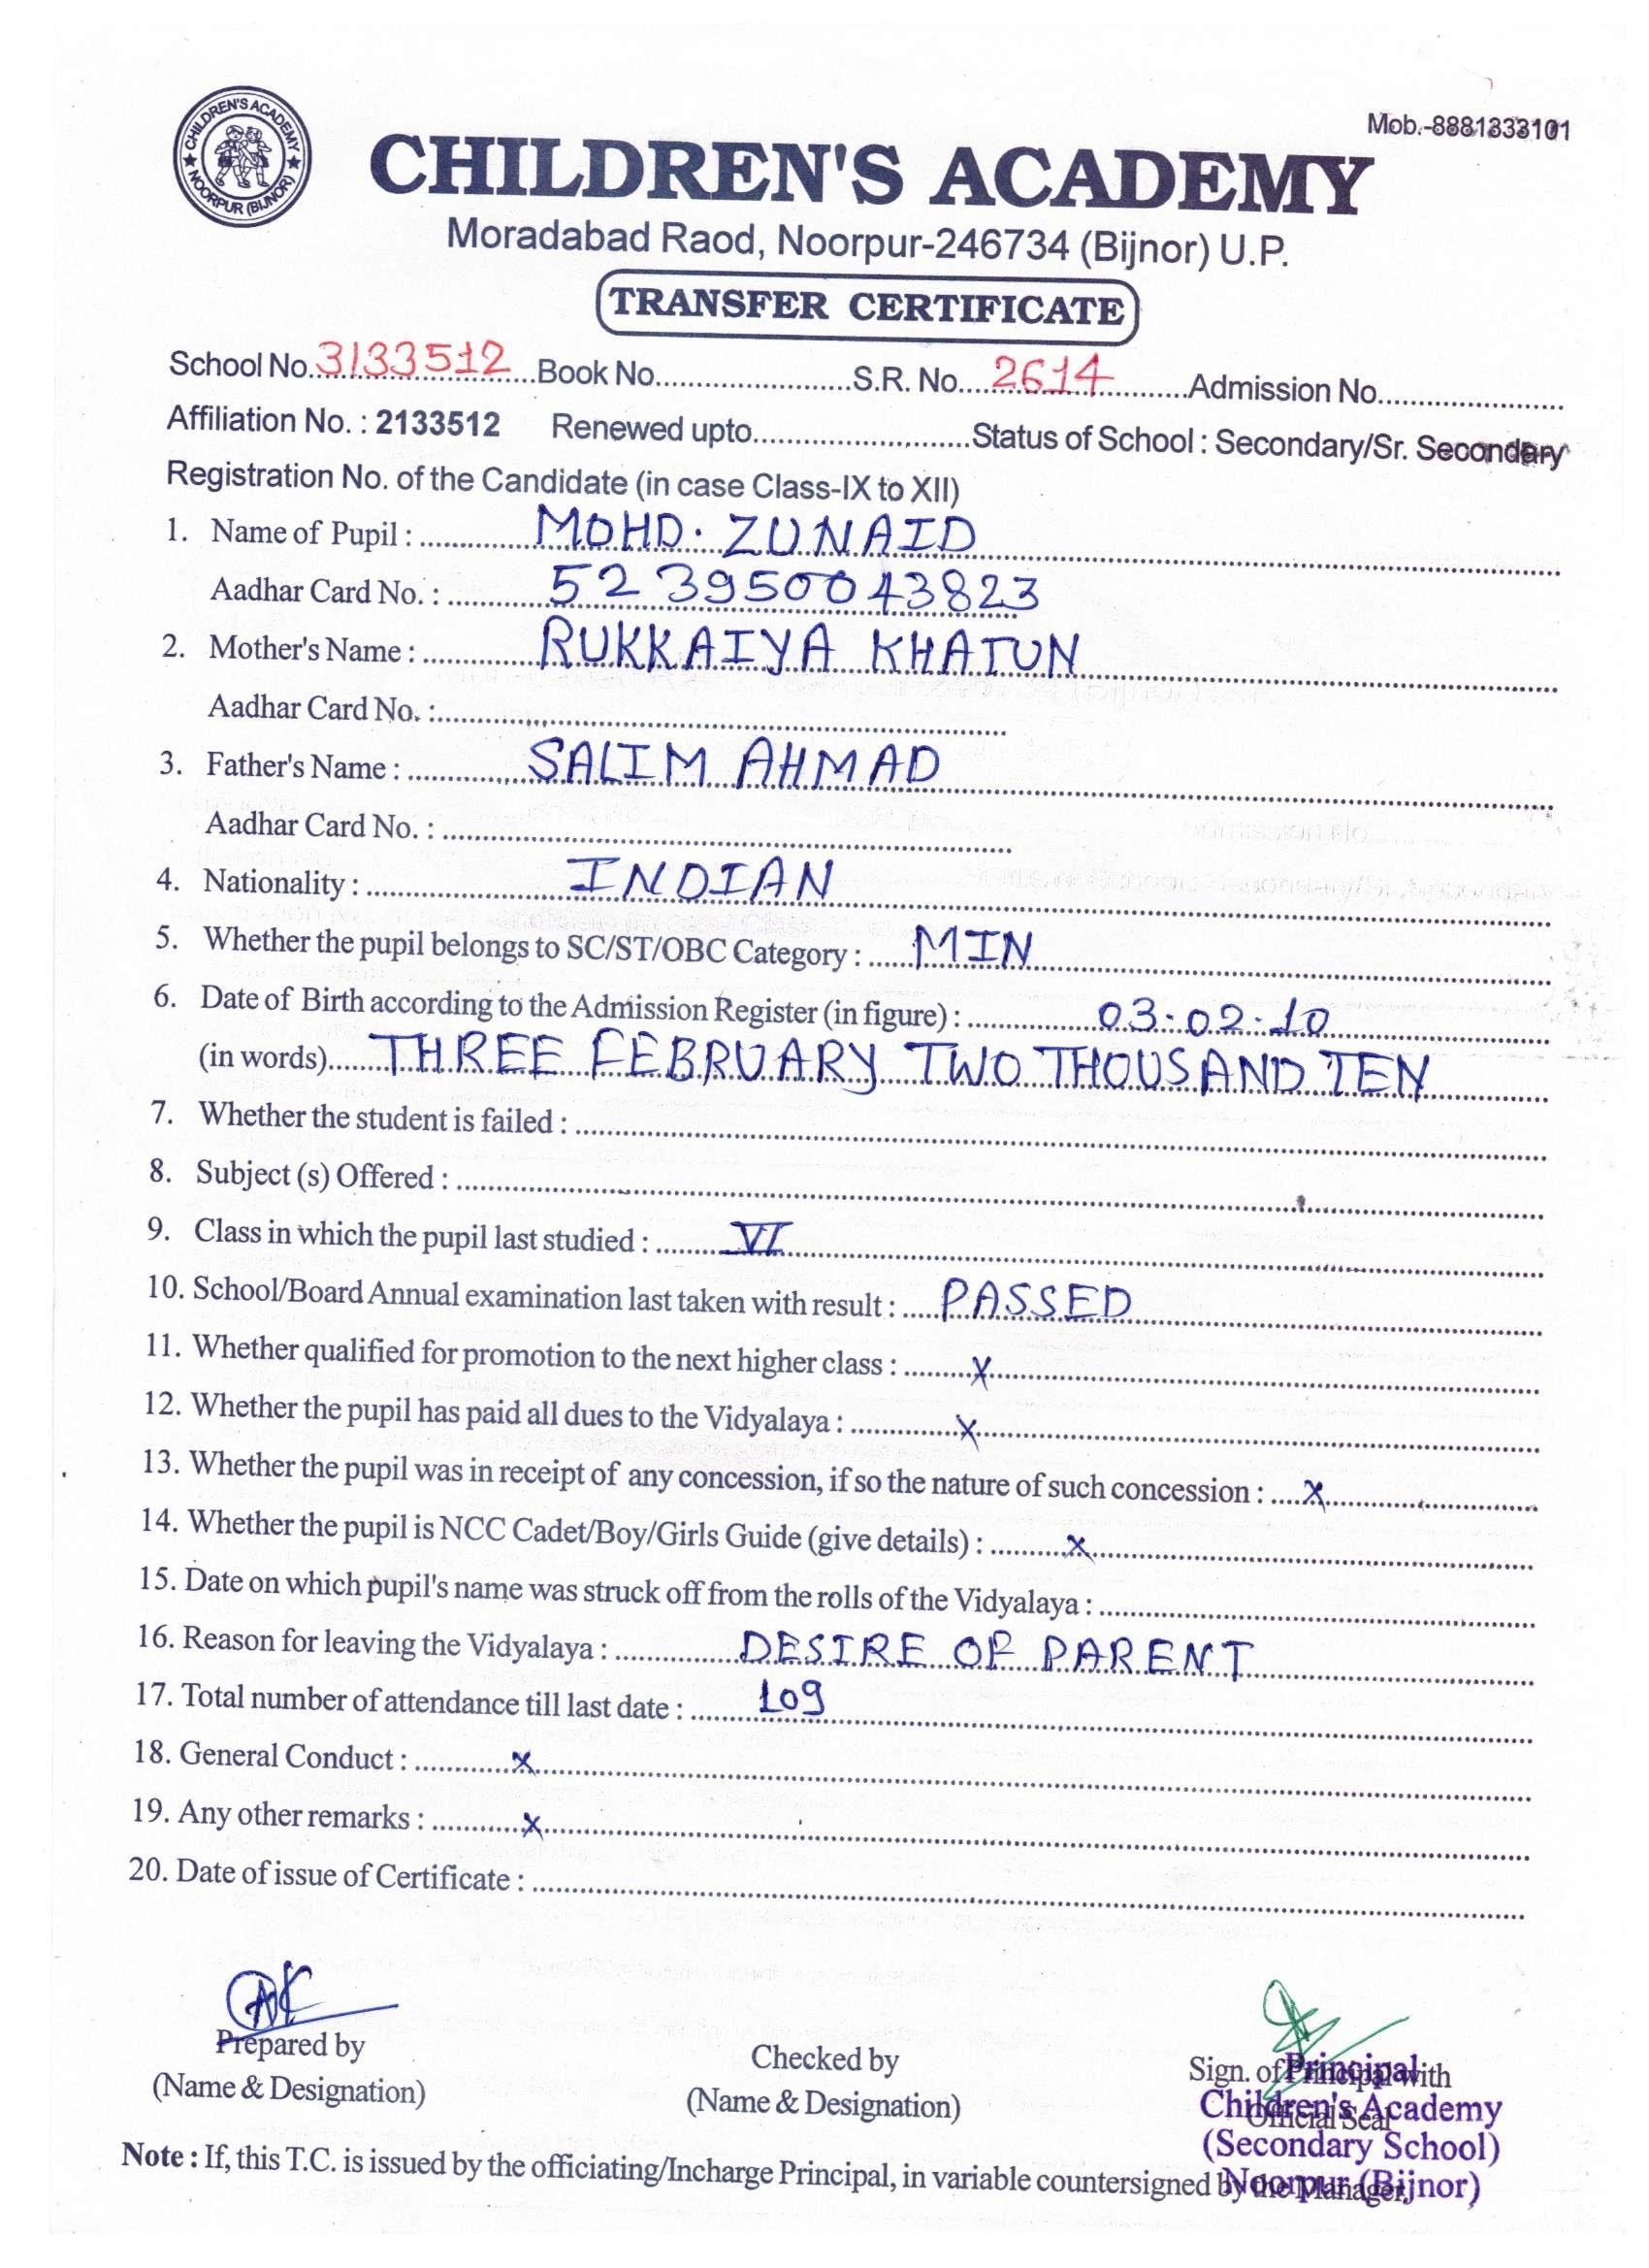 CHILDREN'S ACADEMY
NOORPUR (BIJNOR)
Mob.-8881333101
CHILDREN'S ACADEMY
Moradabad Raod, Noorpur-246734 (Bijnor) U.P.
TRANSFER CERTIFICATE
School No. 3133512 Book No. S.R. No. 2614 Admission No.
Affiliation No. : 2133512 Renewed upto Status of School : Secondary/Sr. Secondary
Registration No. of the Candidate (in case Class-IX to XII)
1. Name of Pupil : MOHD. ZUNAID
Aadhar Card No. : 523950043823
2. Mother's Name : RUKKAIYA KHATUN
Aadhar Card No. :
3. Father's Name : SALIM AHMAD
Aadhar Card No. :
4. Nationality : INDIAN
5. Whether the pupil belongs to SC/ST/OBC Category : MIN
6. Date of Birth according to the Admission Register (in figure) : 03.02.10
(in words) THREE FEBRUARY TWO THOUSAND TEN
7. Whether the student is failed :
8. Subject (s) Offered :
9. Class in which the pupil last studied : VI
10. School/Board Annual examination last taken with result : PASSED
11. Whether qualified for promotion to the next higher class : X
12. Whether the pupil has paid all dues to the Vidyalaya : X
13. Whether the pupil was in receipt of any concession, if so the nature of such concession : X
14. Whether the pupil is NCC Cadet/Boy/Girls Guide (give details) : X
15. Date on which pupil's name was struck off from the rolls of the Vidyalaya :
16. Reason for leaving the Vidyalaya : DESIRE OF PARENT
17. Total number of attendance till last date : 109
18. General Conduct : X
19. Any other remarks : X
20. Date of issue of Certificate :
Prepared by
(Name & Designation)
Checked by
(Name & Designation)
Sign. of Principal with
Official Seal
Principal
Children's Academy
(Secondary School)
Noorpur (Bijnor)
Note : If, this T.C. is issued by the officiating/Incharge Principal, in variable countersigned by the Manager.